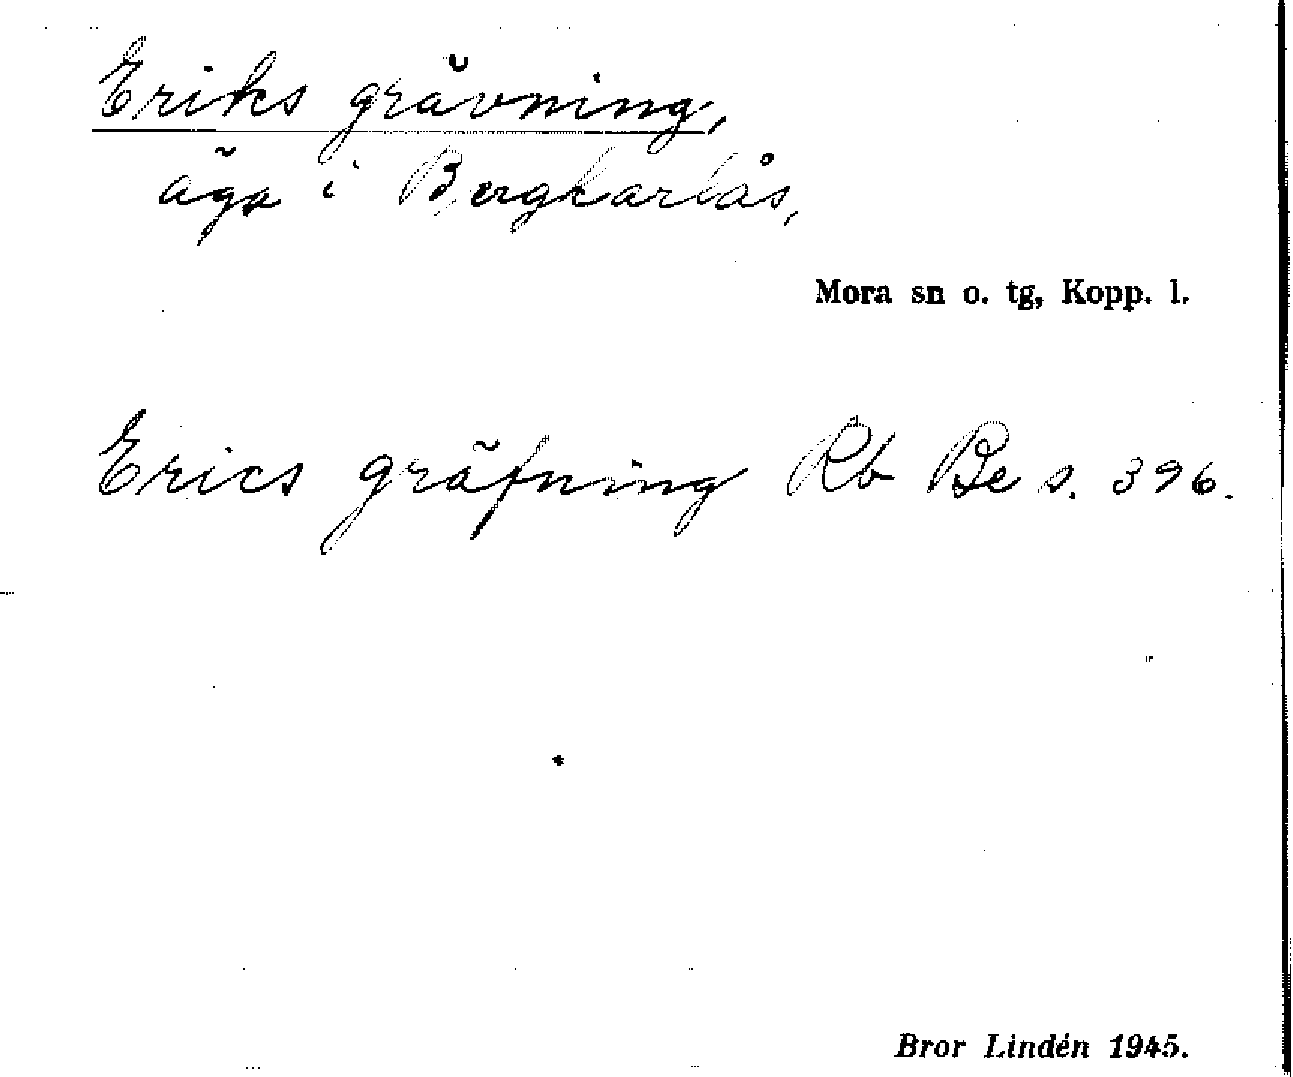 Eriks grävning,
äga i Bergkarlås,
Mora sn o. tg, Kopp. l.
Erics gräfning Rb Be s. 396.
Bror Lindén 1945.